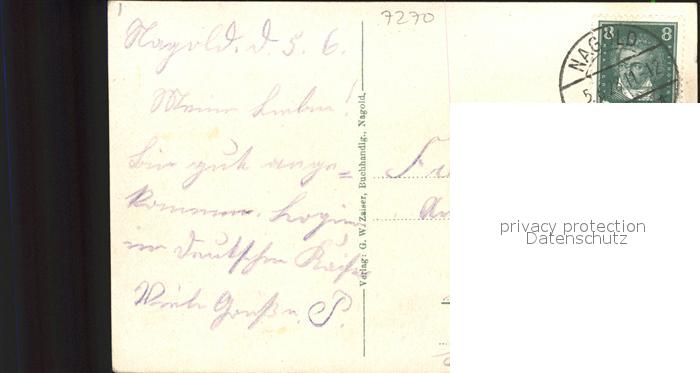 7270
Nagold. d. 5. 6.
Meine Lieben!
bin gut ange=
kommen. Logiere
im deutschen Kaiser
Viele Grüße. P.
Verlag: G. W. Zaiser, Buchhandlg., Nagold.
8 8
NAGOLD
5. 11-12
privacy protection
Datenschutz